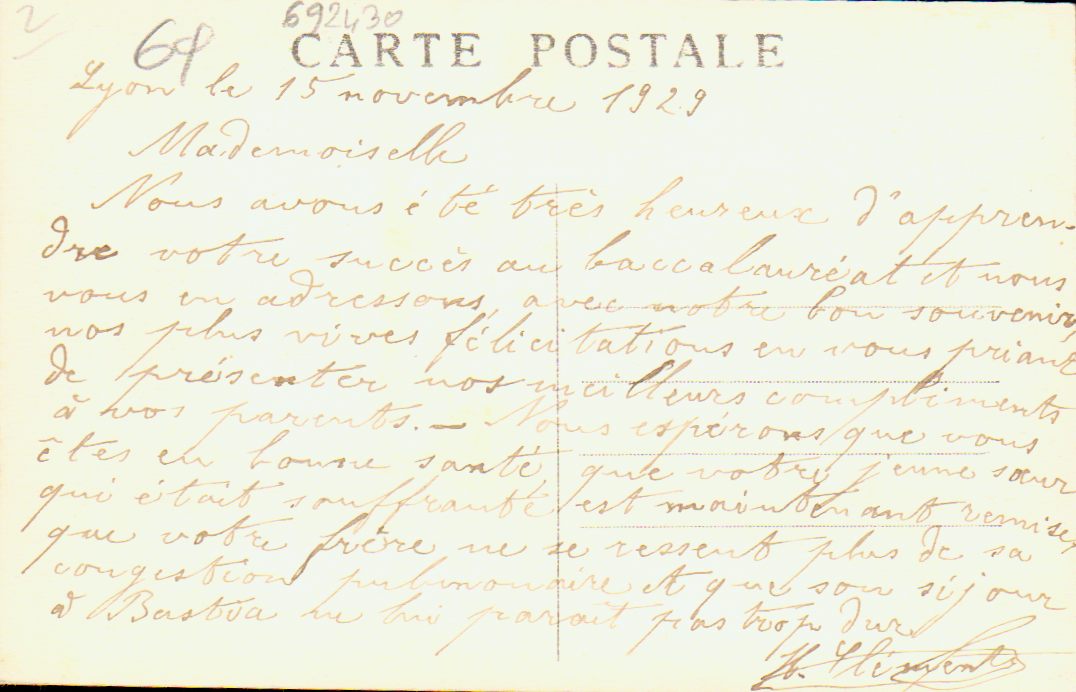 2
64
692430
CARTE POSTALE
Lyon le 15 novembre 1929
Mademoiselle
Nous avons été très heureux d'appren-
dre votre succès au baccalauréat et nous
vous en adressons, avec notre bon souvenir,
nos plus vives félicitations en vous priant
de présenter nos meilleurs compliments
à vos parents. — Nous espérons que vous
êtes en bonne santé, que votre jeune sœur
qui était souffrante est maintenant remise,
que votre frère ne se ressent plus de sa
congestion pulmonaire et que son séjour
à Bastia ne lui paraît pas trop dur.
H. Clément